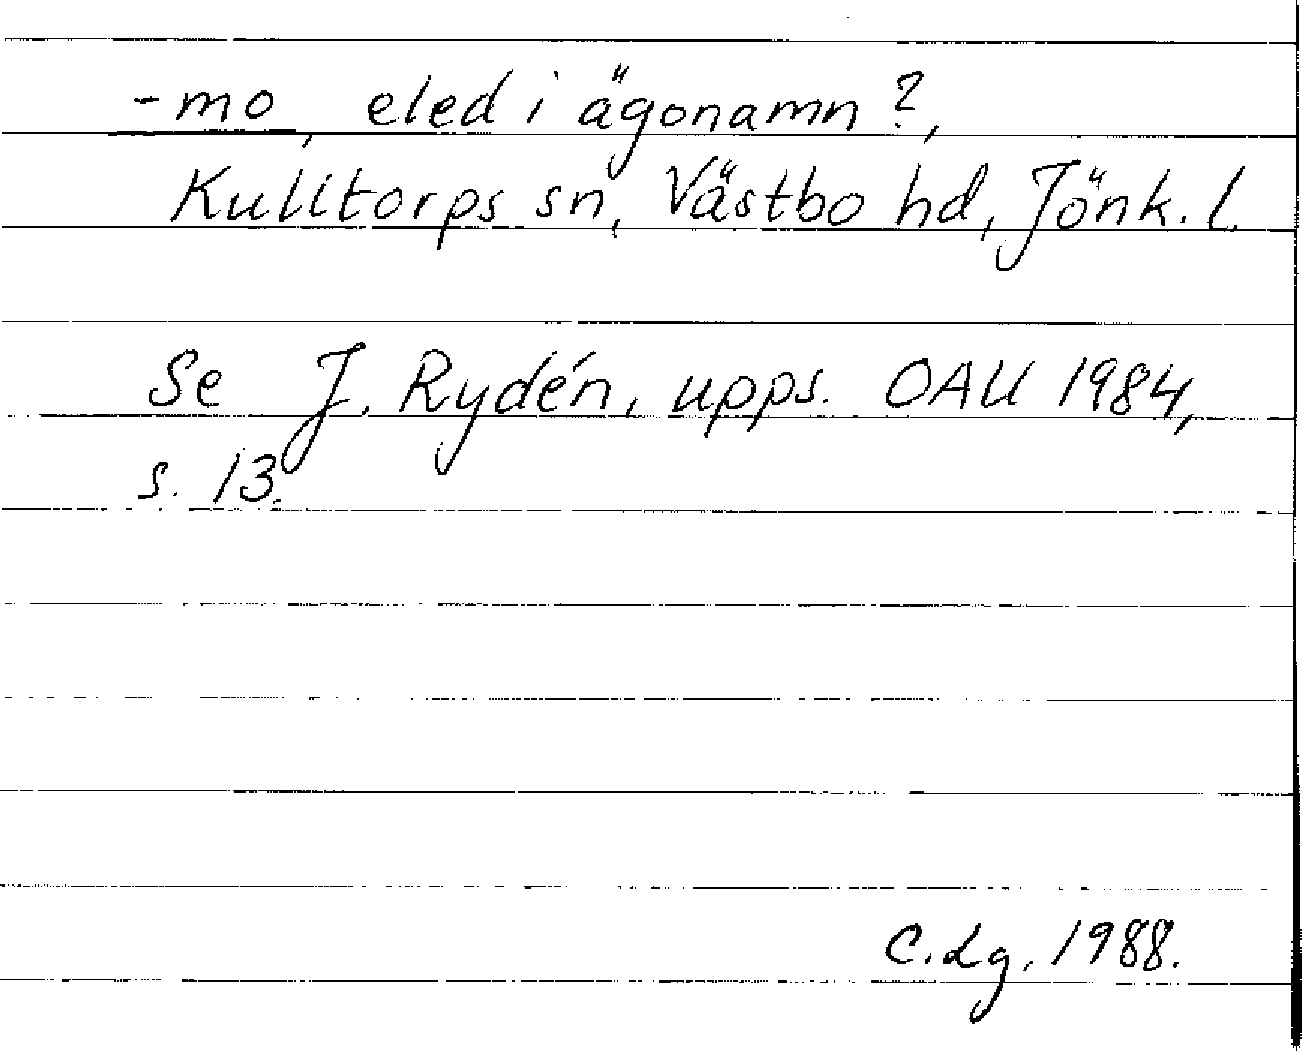 -mo, eled i ägonamn?,
Kulltorps sn, Västbo hd, Jönk. l.
Se J. Rydén, upps. OAU 1984,
s. 13.
C. Lg. 1988.